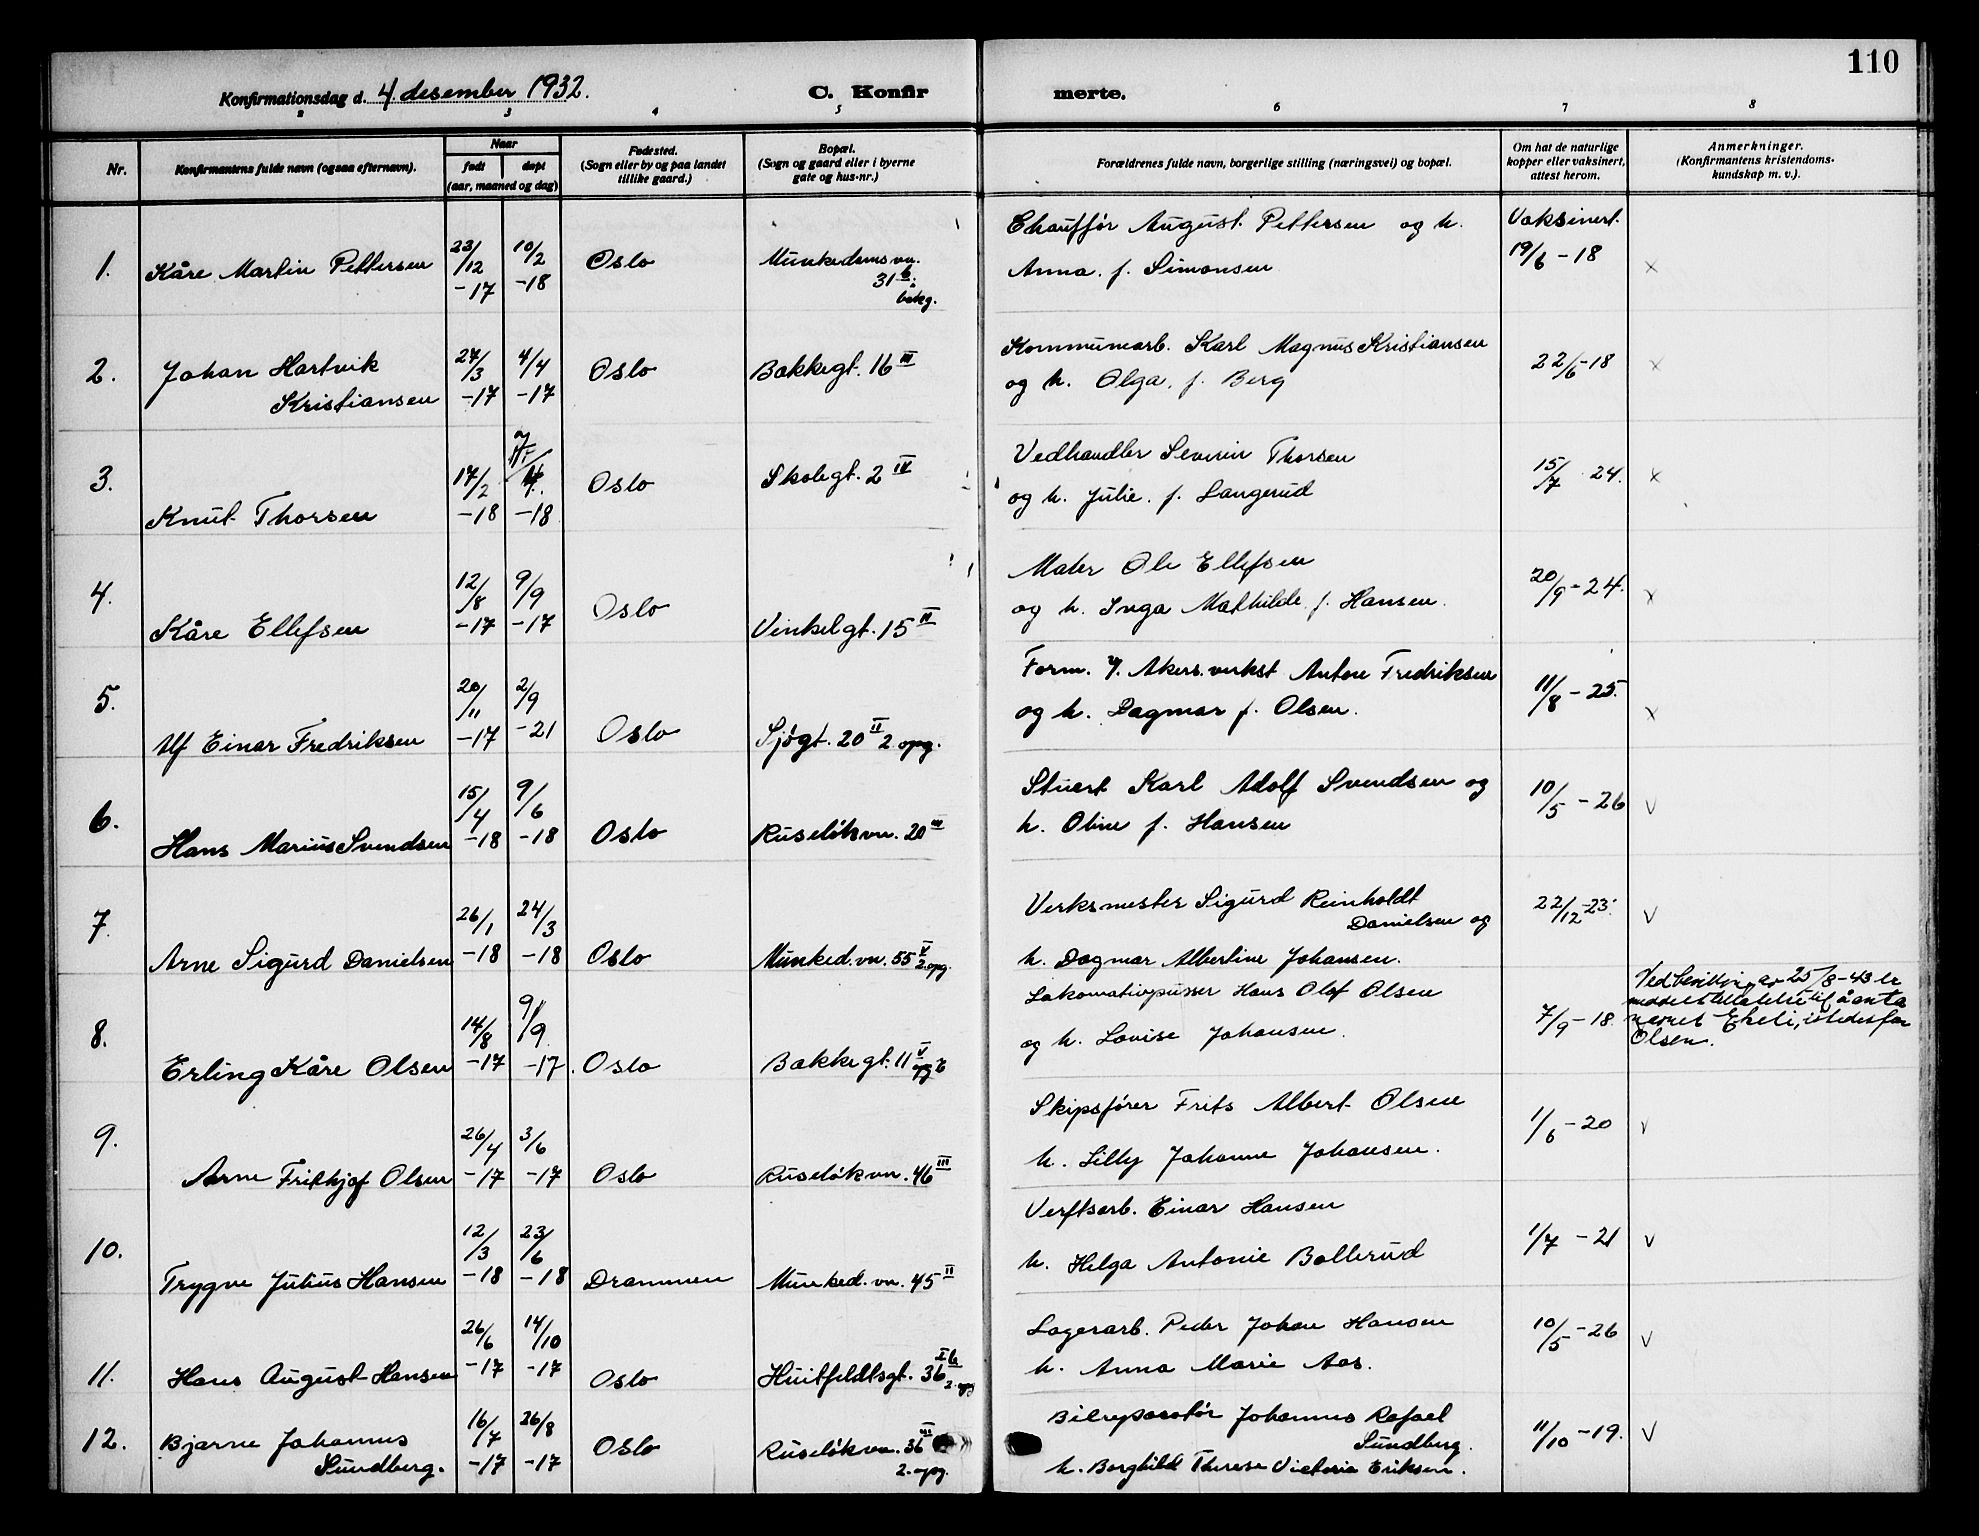 110
Konfirmationsdag d. 4. desember 1932.
C. Konfir
merte.
2 3 4 5 6 7 8
Nr.
Konfirmantens fulde navn (ogsaa efternavn).
Naar
født
døpt
(aar, maaned og dag)
Fødested.
(Sogn eller by og paa landet
tillike gaard.)
Bopæl.
(Sogn og gaard eller i byerne
gate og hus-nr.)
Forældrenes fulde navn, borgerlige stilling (næringsvei) og bopæl.
Om hat de naturlige
kopper eller vaksinert,
attest herom.
Anmerkninger.
(Konfirmantens kristendoms-
kundskap m. v.).
1. Kåre Martin Pettersen 23/12 -17 10/2 -18 Oslo Munkedamsvn.
31 b.
bakg.
Chauffør August Pettersen og h.
Anna. f. Simonsen
Vaksinert.
19/6 - 18 x
2. Johan Hartvik
Kristiansen 27/3 -17 4/4 -17 Oslo Bakkegt. 16 III
Kommunearb. Karl Magnus Kristiansen
og h. Olga. f. Berg
22/6 -18 x
3. Knut Thorsen 17/2 -18 -18 Oslo Skolegt. 2 IV
Vedhandler Severin Thorsen
og h. Julie. f. Langerud
15/7 24. x
4. Kåre Ellefsen 12/8 -17 9/9 -17 Oslo Vinkelgt. 15 II
Maler Ole Ellefsen
og h. Inga Mathilde f. Hansen.
20/9 - 24. x
5. Ulf Einar Fredriksen 20/11 -17 2/9 -21 Oslo Sjøgt. 20 II 2. opg.
Form. v/. Akers. verkst Anton Fredriksen
og h. Dagmar f. Olsen.
11/8 - 25. x
6. Hans Marius Svendsen 15/4 -18 9/6 -18 Oslo Ruseløkvn. 20 III
Stuert Karl Adolf Svendsen og
h. Oline f. Hansen
10/5 - 26 v
7. Arne Sigurd Danielsen 26/1 -18 24/3 -18 Oslo Munked. vn. 55 V 2. opg.
Verksmester Sigurd Reinholdt
Danielsen og
h. Dagmar Albertine Johansen.
22/12 -23. v
8. Erling Kåre Olsen 14/8 -17 9/9. -17. Oslo Bakkegt. 11 V opg 2
Lokomotivpusser Hans Olaf Olsen
og h. Lovise Johansen.
7/9 - 18.
Ved bevilling av 25/8-43 er
meddelt tillatelse til å anta
navnet Eheli, istedetfor
Olsen.
9. Arne Frithjof Olsen 26/4 -17 3/6 -17 Oslo Ruseløkvn. 46 III
Skipsfører Frits Albert Olsen
h. Lilly Johanne Johansen.
1/6 - 20 v
10. Trygve Julius Hansen 12/3 -18 23/6 -18 Drammen Munked. vn. 45 II
Verftsarb. Einar Hansen
h. Helga Antonie Bollerud
1/7 - 21 v
11. Hans August Hansen 26/6 -17 14/10 -17 Oslo Huitfeldtsgt. 36 I b 2. opg
Lagerarb. Peder Johan Hansen
h. Anna Marie Aas.
10/5 - 26 v
12. Bjarne Johannes
Sundberg. 16/7 -17 26/8 -17 Oslo Ruseløkvn. 36 III
2. opg.
Bilreparatør Johannes Rafael
Sundberg.
h. Borghild Therese Victoria Eriksen.
11/10 - 19. v